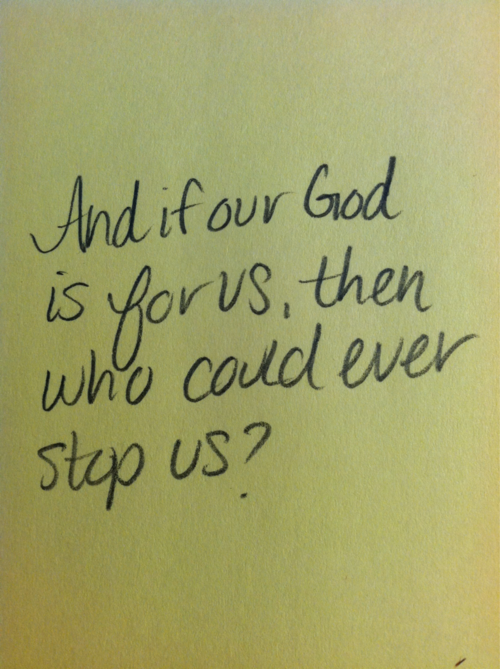 And if our God
is for us, then
who could ever
stop us?